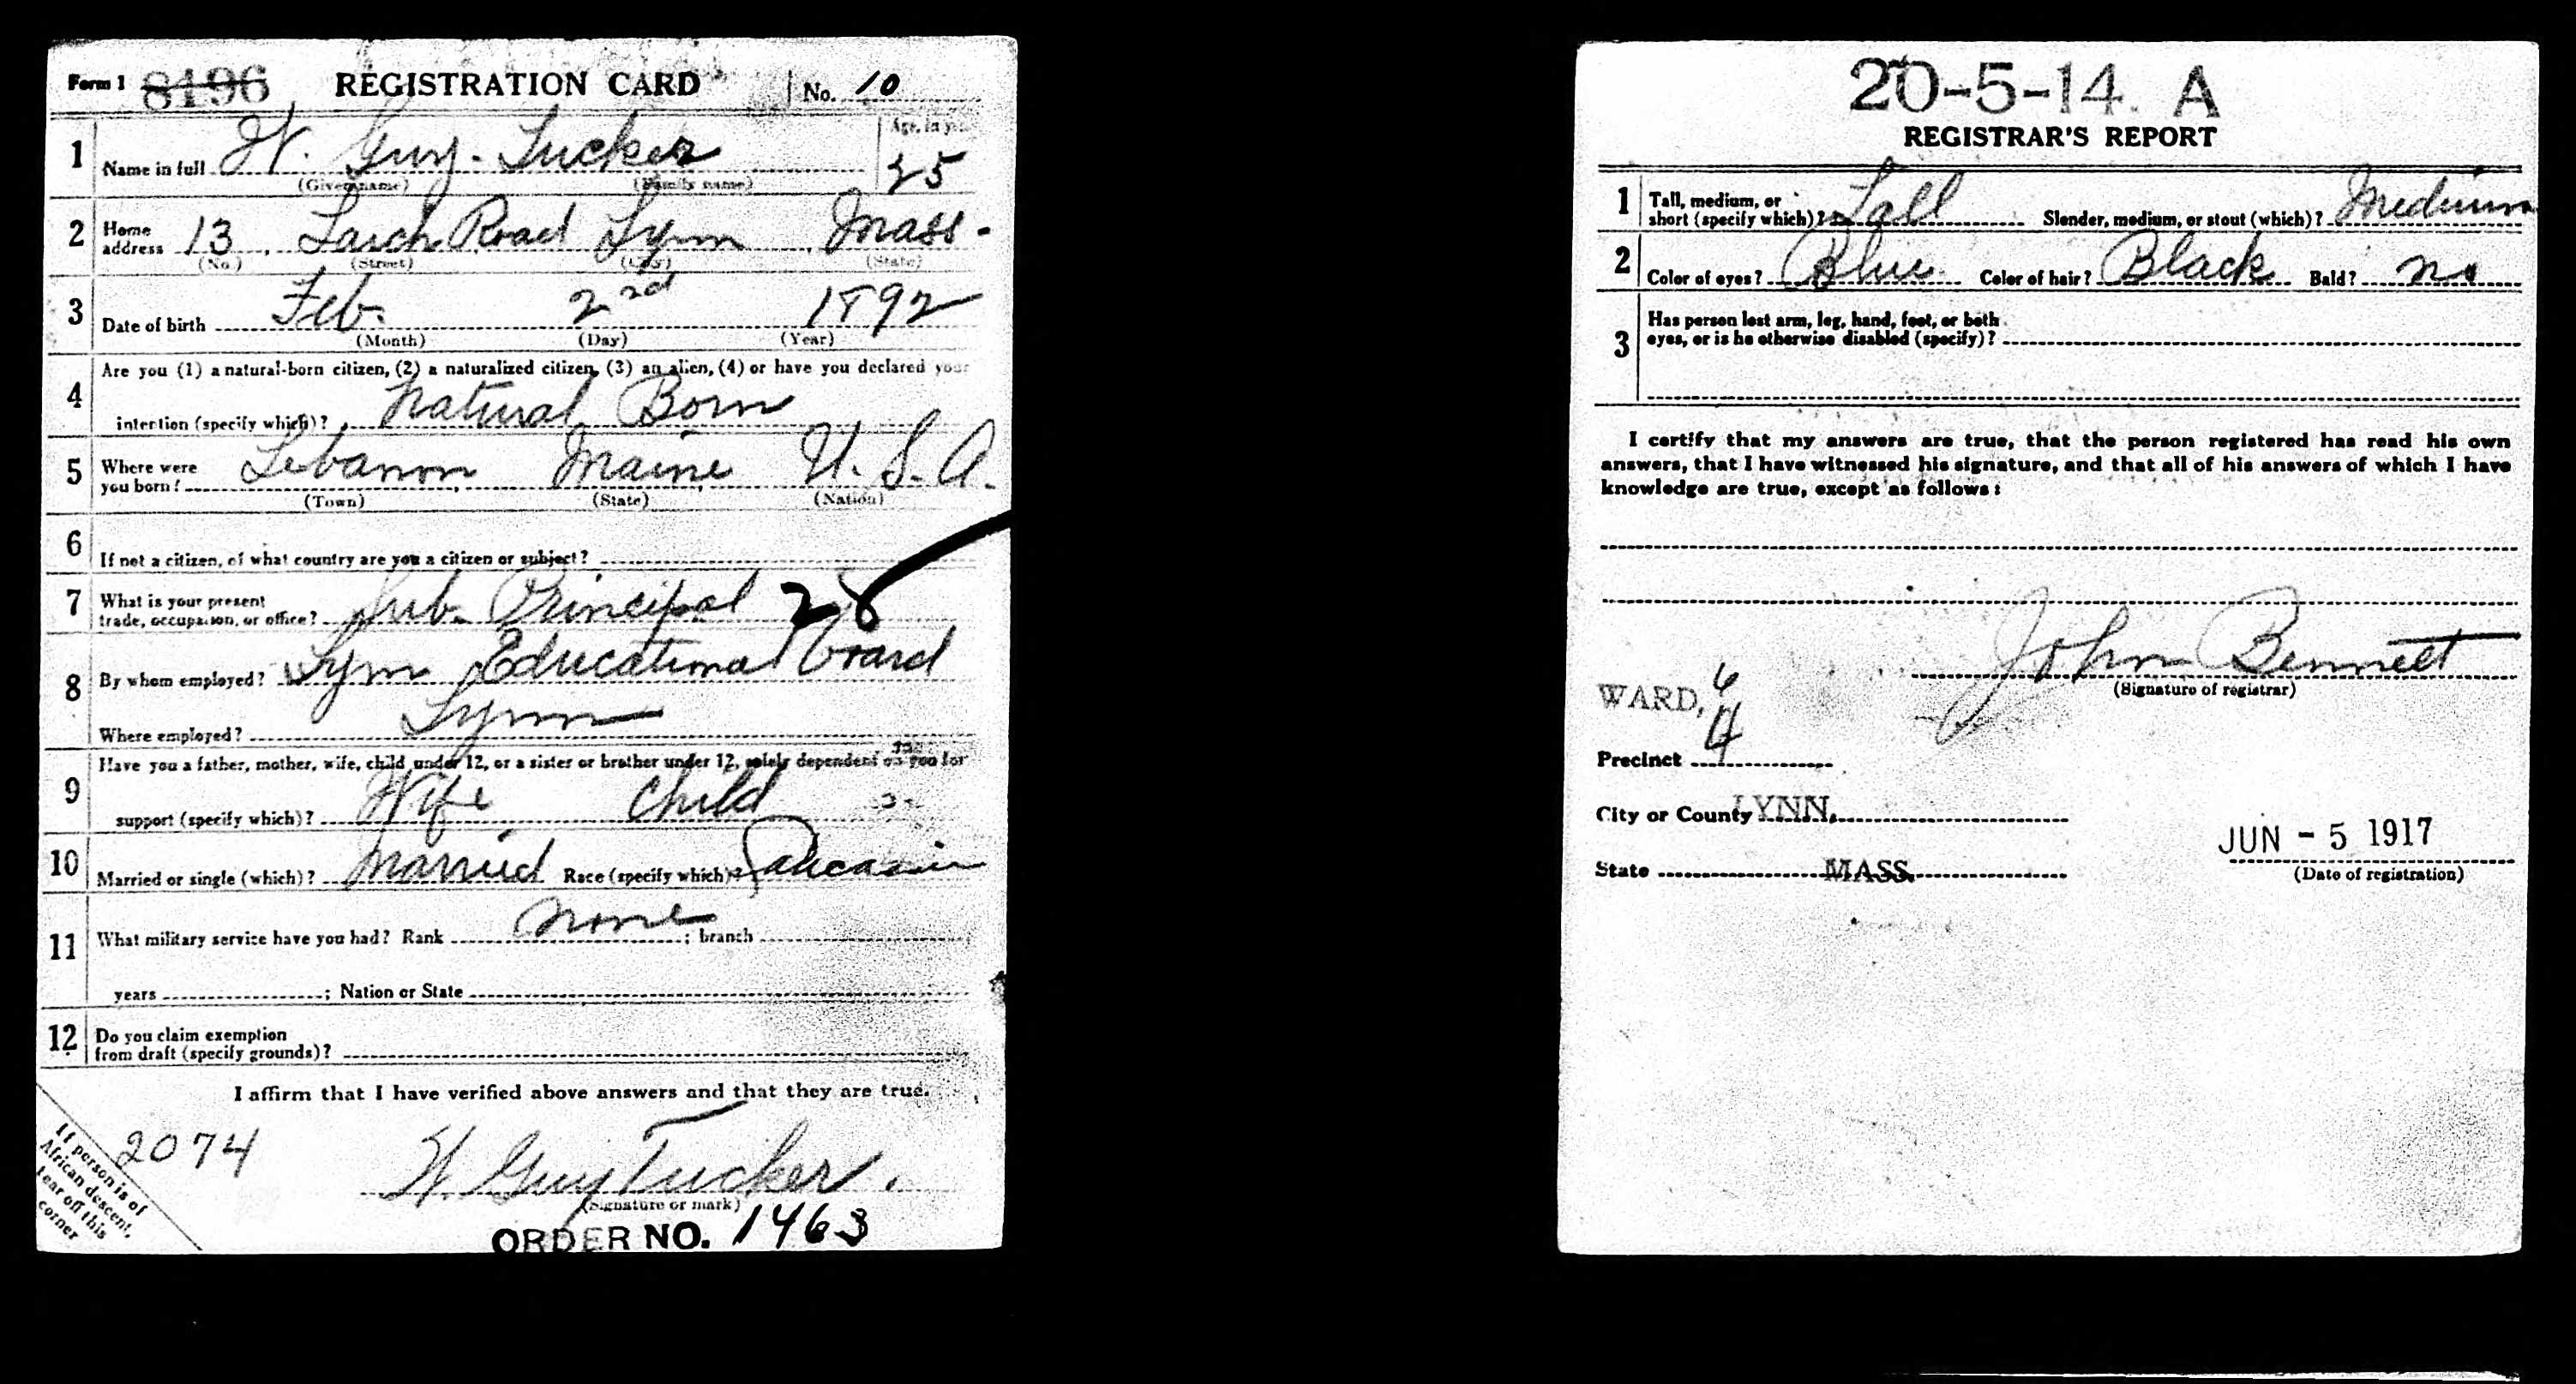 Form 1 8196 REGISTRATION CARD No. 10
1 Name in full H. Guy. Tucker Age, in yrs. 25
(Given name) (Family name)
2 Home address 13 Larch Road Lynn Mass.
(No.) (Street) (City) (State)
3 Date of birth Feb. 2nd 1892
(Month) (Day) (Year)
4 Are you (1) a natural-born citizen, (2) a naturalized citizen, (3) an alien, (4) or have you declared your
intention (specify which)? Natural Born
5 Where were you born? Lebanon Maine U.S.A.
(Town) (State) (Nation)
6 If not a citizen, of what country are you a citizen or subject?
7 What is your present trade, occupation, or office? Sub. Principal 28
8 By whom employed? Lynn Educational Board
Where employed? Lynn
9 Have you a father, mother, wife, child under 12, or a sister or brother under 12, solely dependent on you for
support (specify which)? Wife Child
10 Married or single (which)? Married Race (specify which)? Caucasin
11 What military service have you had? Rank none ; branch
years ; Nation or State
12 Do you claim exemption
from draft (specify grounds)?
I affirm that I have verified above answers and that they are true.
2074
H. Guy Tucker.
(Signature or mark)
If person is of
African descent,
tear off this
corner
ORDER NO. 1463
20-5-14. A
REGISTRAR'S REPORT
1 Tall, medium, or short (specify which)? Tall Slender, medium, or stout (which)? Medium
2 Color of eyes? Blue Color of hair? Black Bald? no
3 Has person lost arm, leg, hand, foot, or both
eyes, or is he otherwise disabled (specify)?
I certify that my answers are true, that the person registered has read his own
answers, that I have witnessed his signature, and that all of his answers of which I have
knowledge are true, except as follows:
John Bennett
(Signature of registrar)
WARD, 6
Precinct 4
City or County LYNN.
State MASS.
JUN - 5 1917
(Date of registration)